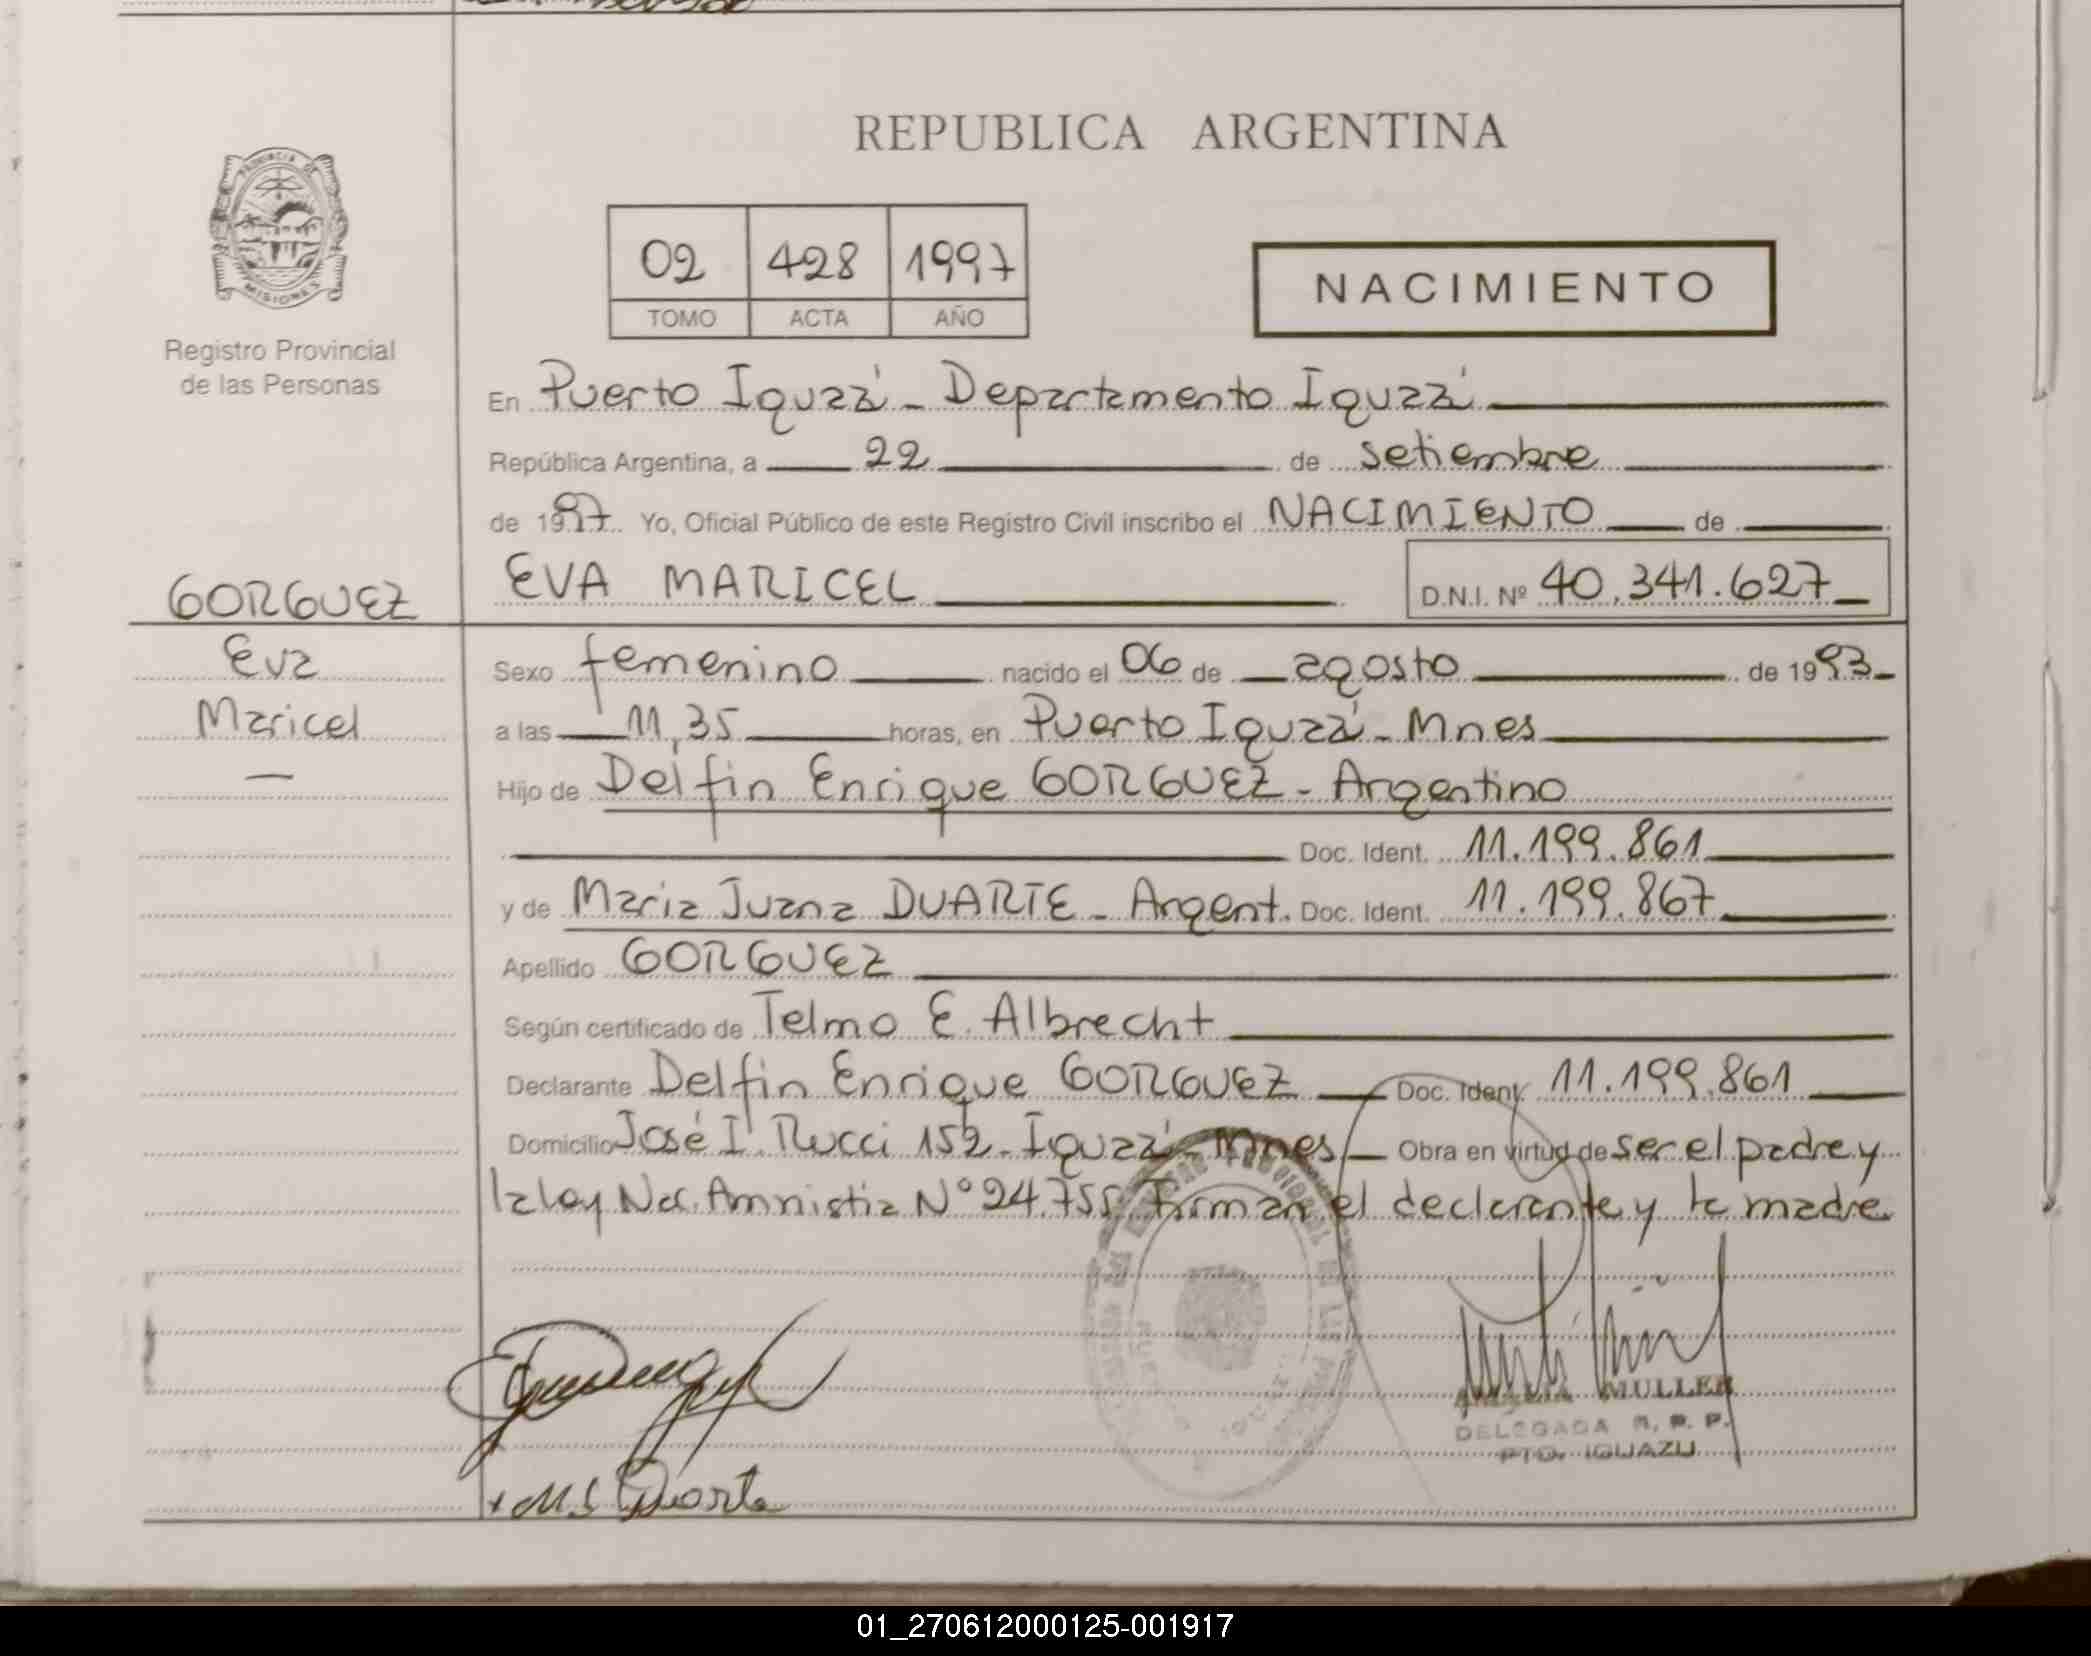 REPUBLICA ARGENTINA
PROVINCIA DE
MISIONES
Registro Provincial
de las Personas
02 428 1997
TOMO ACTA AÑO
NACIMIENTO
En Puerto Iguazú - Departamento Iguazú
República Argentina, a 22 de setiembre
de 1997 Yo, Oficial Público de este Registro Civil inscribo el NACIMIENTO de
GORGUEZ EVA MARICEL D.N.I. Nº 40.341.627
Eva Sexo femenino nacido el 06 de agosto de 1993
Maricel a las 11,35 horas, en Puerto Iguazú - Mnes
Hijo de Delfin Enrique GORGUEZ - Argentino
Doc. Ident. 11.199.861
y de Maria Juana DUARTE - Argent. Doc. Ident. 11.199.867
Apellido GORGUEZ
Según certificado de Telmo E. Albrecht
Declarante Delfin Enrique GORGUEZ Doc. Ident. 11.199.861
Domicilio José I. Rucci 152 - Iguazú - Mnes Obra en virtud de ser el padre y
la ley Nac. Amnistia Nº 24.755 Firman el declarante y la madre
MULLER
DELEGADA R. P. P.
PTO. IGUAZU
Duarte
01_270612000125-001917